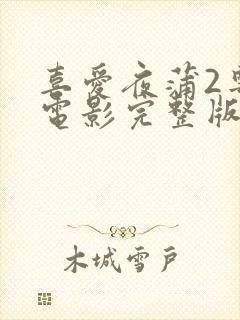 喜愛夜蒲2
電影完整版
木城雪戶